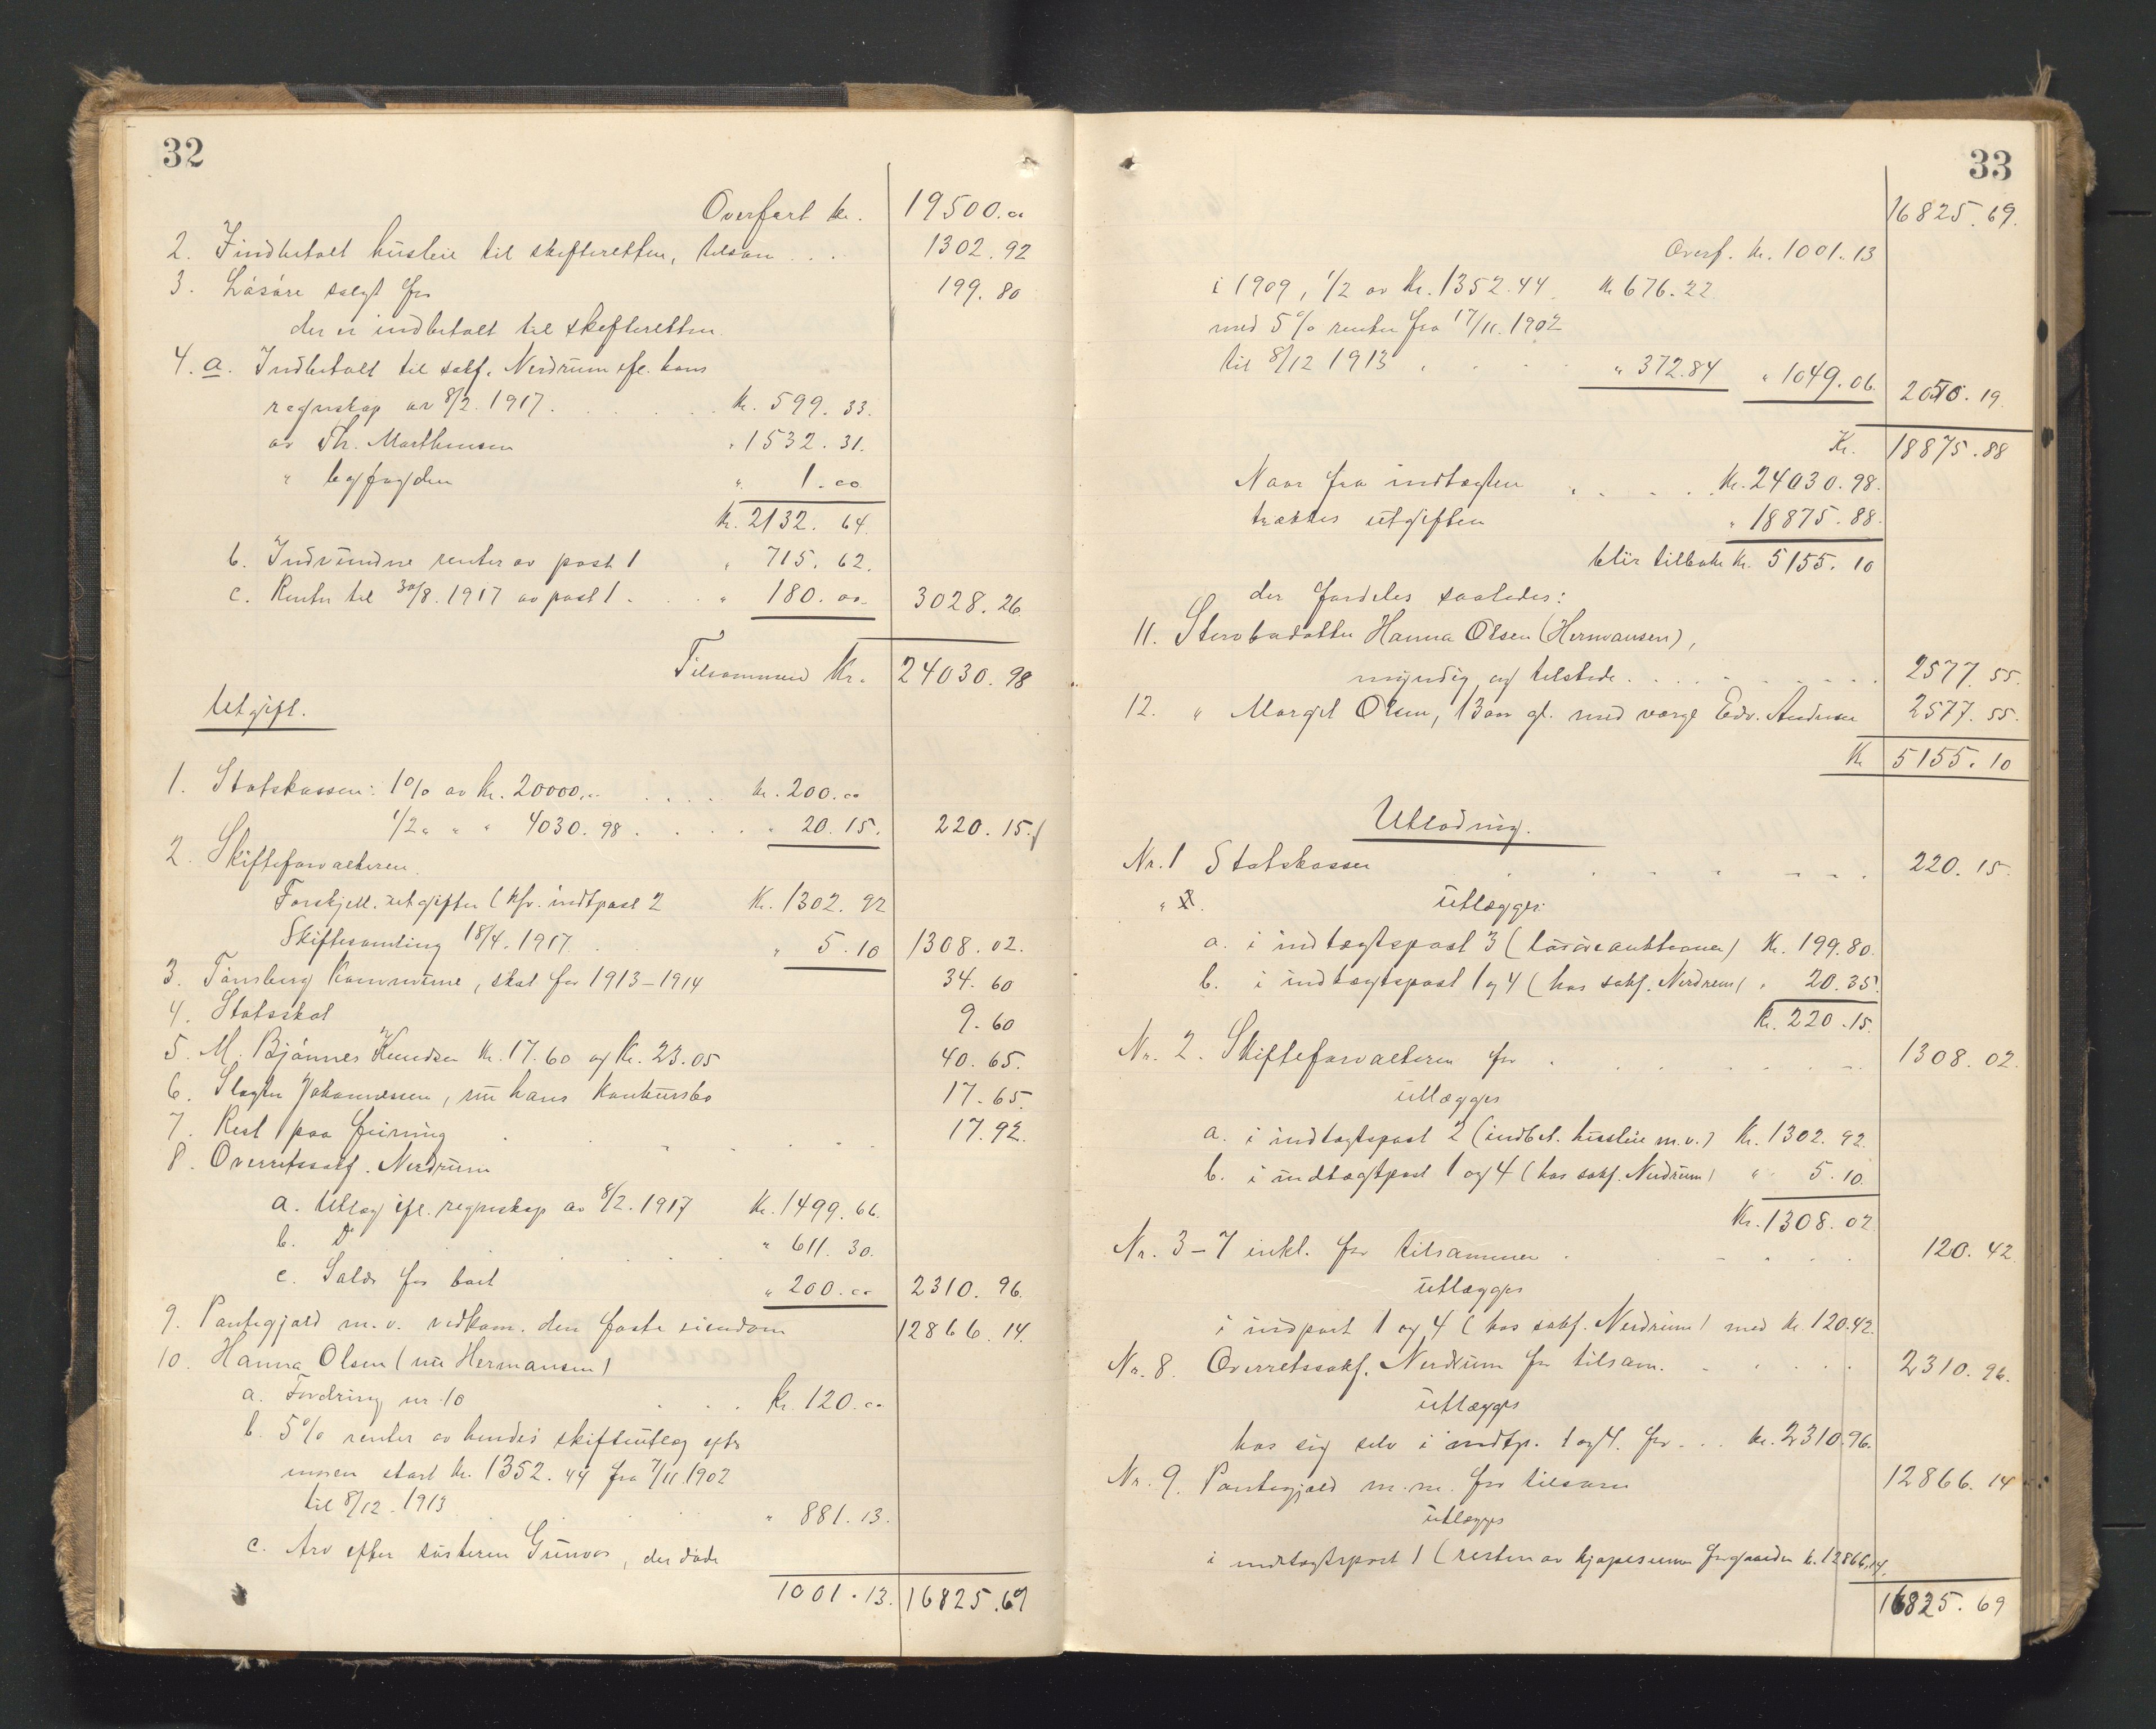 32
Overført kr. 19500.00
2. Indbetalt husleie til skifteretten, tilsam . . . 1302.92
3. Løsøre solgt for 199.80
der er indbetalt til skifteretten.
4. a. Indbetalt til sakf. Nerdrum ifl. hans
regnskap av 8/2. 1917. . . . . . . kr. 599.33.
av Th. Marthinsen " 1532.31.
" byfogden " 1.00
kr. 2132.64.
b. Indvundne renter av post 1 " 715.62.
c. Renter til 30/8. 1917 av post 1 . . . " 180.00. 3028.26
Tilsammen Kr. 24030.98
Utgift.
1. Statskassen: 1% av kr. 20000.- . . . . kr. 200.00
1/2 " " " 4030.98 . . . . " 20.15. 220.15.
2. Skifteforvalteren.
Forskjell. utgifter (kfr. indtpost 2 Kr. 1302.92
Skiftesamling 18/4. 1917. . " 5.10 1308.02.
3. Tønsberg kommune, skat for 1913-1914 34.60
4. Statsskat 9.60
5. M. Bjønnes Knudsen kr. 17.60 og kr. 23.05 40.65.
6. Slagter Johannessen, nu hans konkursbo 17.65.
7. Rest paa feiring . . . . . 17.92.
8. Overretssakf. Nerdrum
a. Utlæg ifl. regnskap av 8/2. 1917 kr. 1499.66.
b. Do . . . . " 611.30.
c. Salær for boet " 200.00 2310.96.
9. Pantegjæld m.v. vedkom. den faste eiendom 12866.14.
10. Hanna Olsen (nu Hermansen)
a. Fordring nr. 10 . . . kr. 120.00
b. 5% renter av hendes skifteutlæg efter
moren stort kr. 1352.44 fra 7/11.1902
til 8/12. 1913 . . . . " 881.13.
c. Arv efter søsteren Gunvor, der døde
1001.13. 16825.69
33
16825.69.
Overf. kr. 1001.13
i 1909, 1/2 av kr. 1352.44 kr 676.22
med 5% renter fra 17/11. 1902
til 8/12 1913 . . . . " 372.84 " 1049.06. 2050.19
Kr. 18875.88
Naar fra indtægten . . . . kr. 24030.98.
trækkes utgiften " 18875.88.
blir tilbake kr. 5155.10
der fordeles saaledes:
11. Stervbodatter Hanna Olsen (Hermansen),
myndig og tilstede . . . . . . . . . 2577.55.
12. " Margit Olsen, 13 aar gl. med værge Edv. Andersen 2577.55.
Kr 5155.10
Utlodning.
Nr. 1 Statskassen . . . . . . . . 220.15.
" 2. utlægges:
a. i indtægtspost 3 (løsøreauktionen) Kr. 199.80.
b. i indtægtspost 1 og 4 (hos sakf. Nerdrum) " 20.35.
Kr. 220.15.
Nr. 2. Skifteforvalteren for . . . . . . . . 1308.02.
utlægges
a. i indtægtspost 2 (indbet. husleie m.v.) Kr. 1302.92.
b. i indtægtpost 1 og 4 (hos sakf. Nerdrum) " 5.10.
Kr. 1308.02
Nr. 3-7 inkl. for tilsammen . . . . . . 120.42
utlægges
i indpost 1 og 4 (hos sakf. Nerdrum) med kr. 120.42.
Nr. 8. Overretssakf. Nerdrum for tilsam. . . . . . 2310.96.
utlægges
hos sig selv i indtp. 1 og 4. for . . . kr. 2310.96.
Nr. 9. Pantegjæld m.m. for tilsam 12866.14
utlægges
i indtægtspost 1 (resten av kjøpesummen for gaarden kr. 12866.14.
16825.69